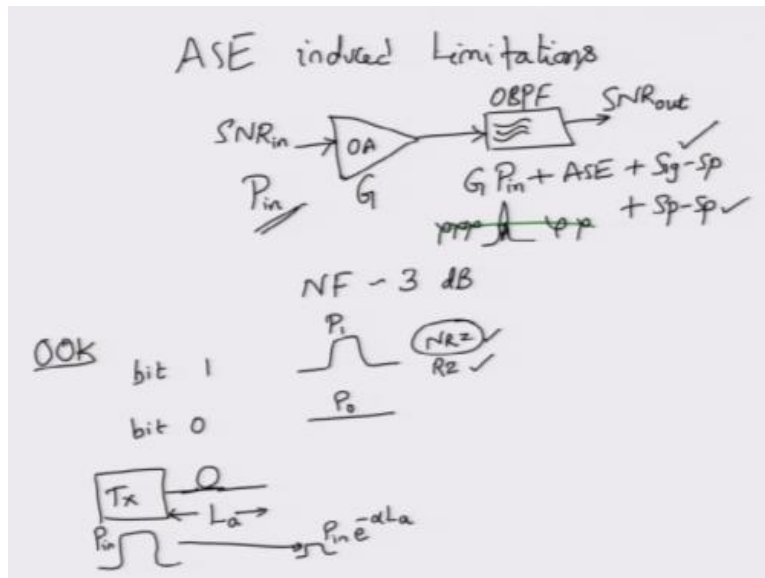 ASE induced Limitations
OBPF
SNRin OA SNRout
Pin G G Pin + ASE + Sig-Sp
+ Sp-Sp
NF ~ 3 dB
P1
OOK bit 1 NRZ
RZ
bit 0 P0
Tx
La
Pin Pin e^-αLa